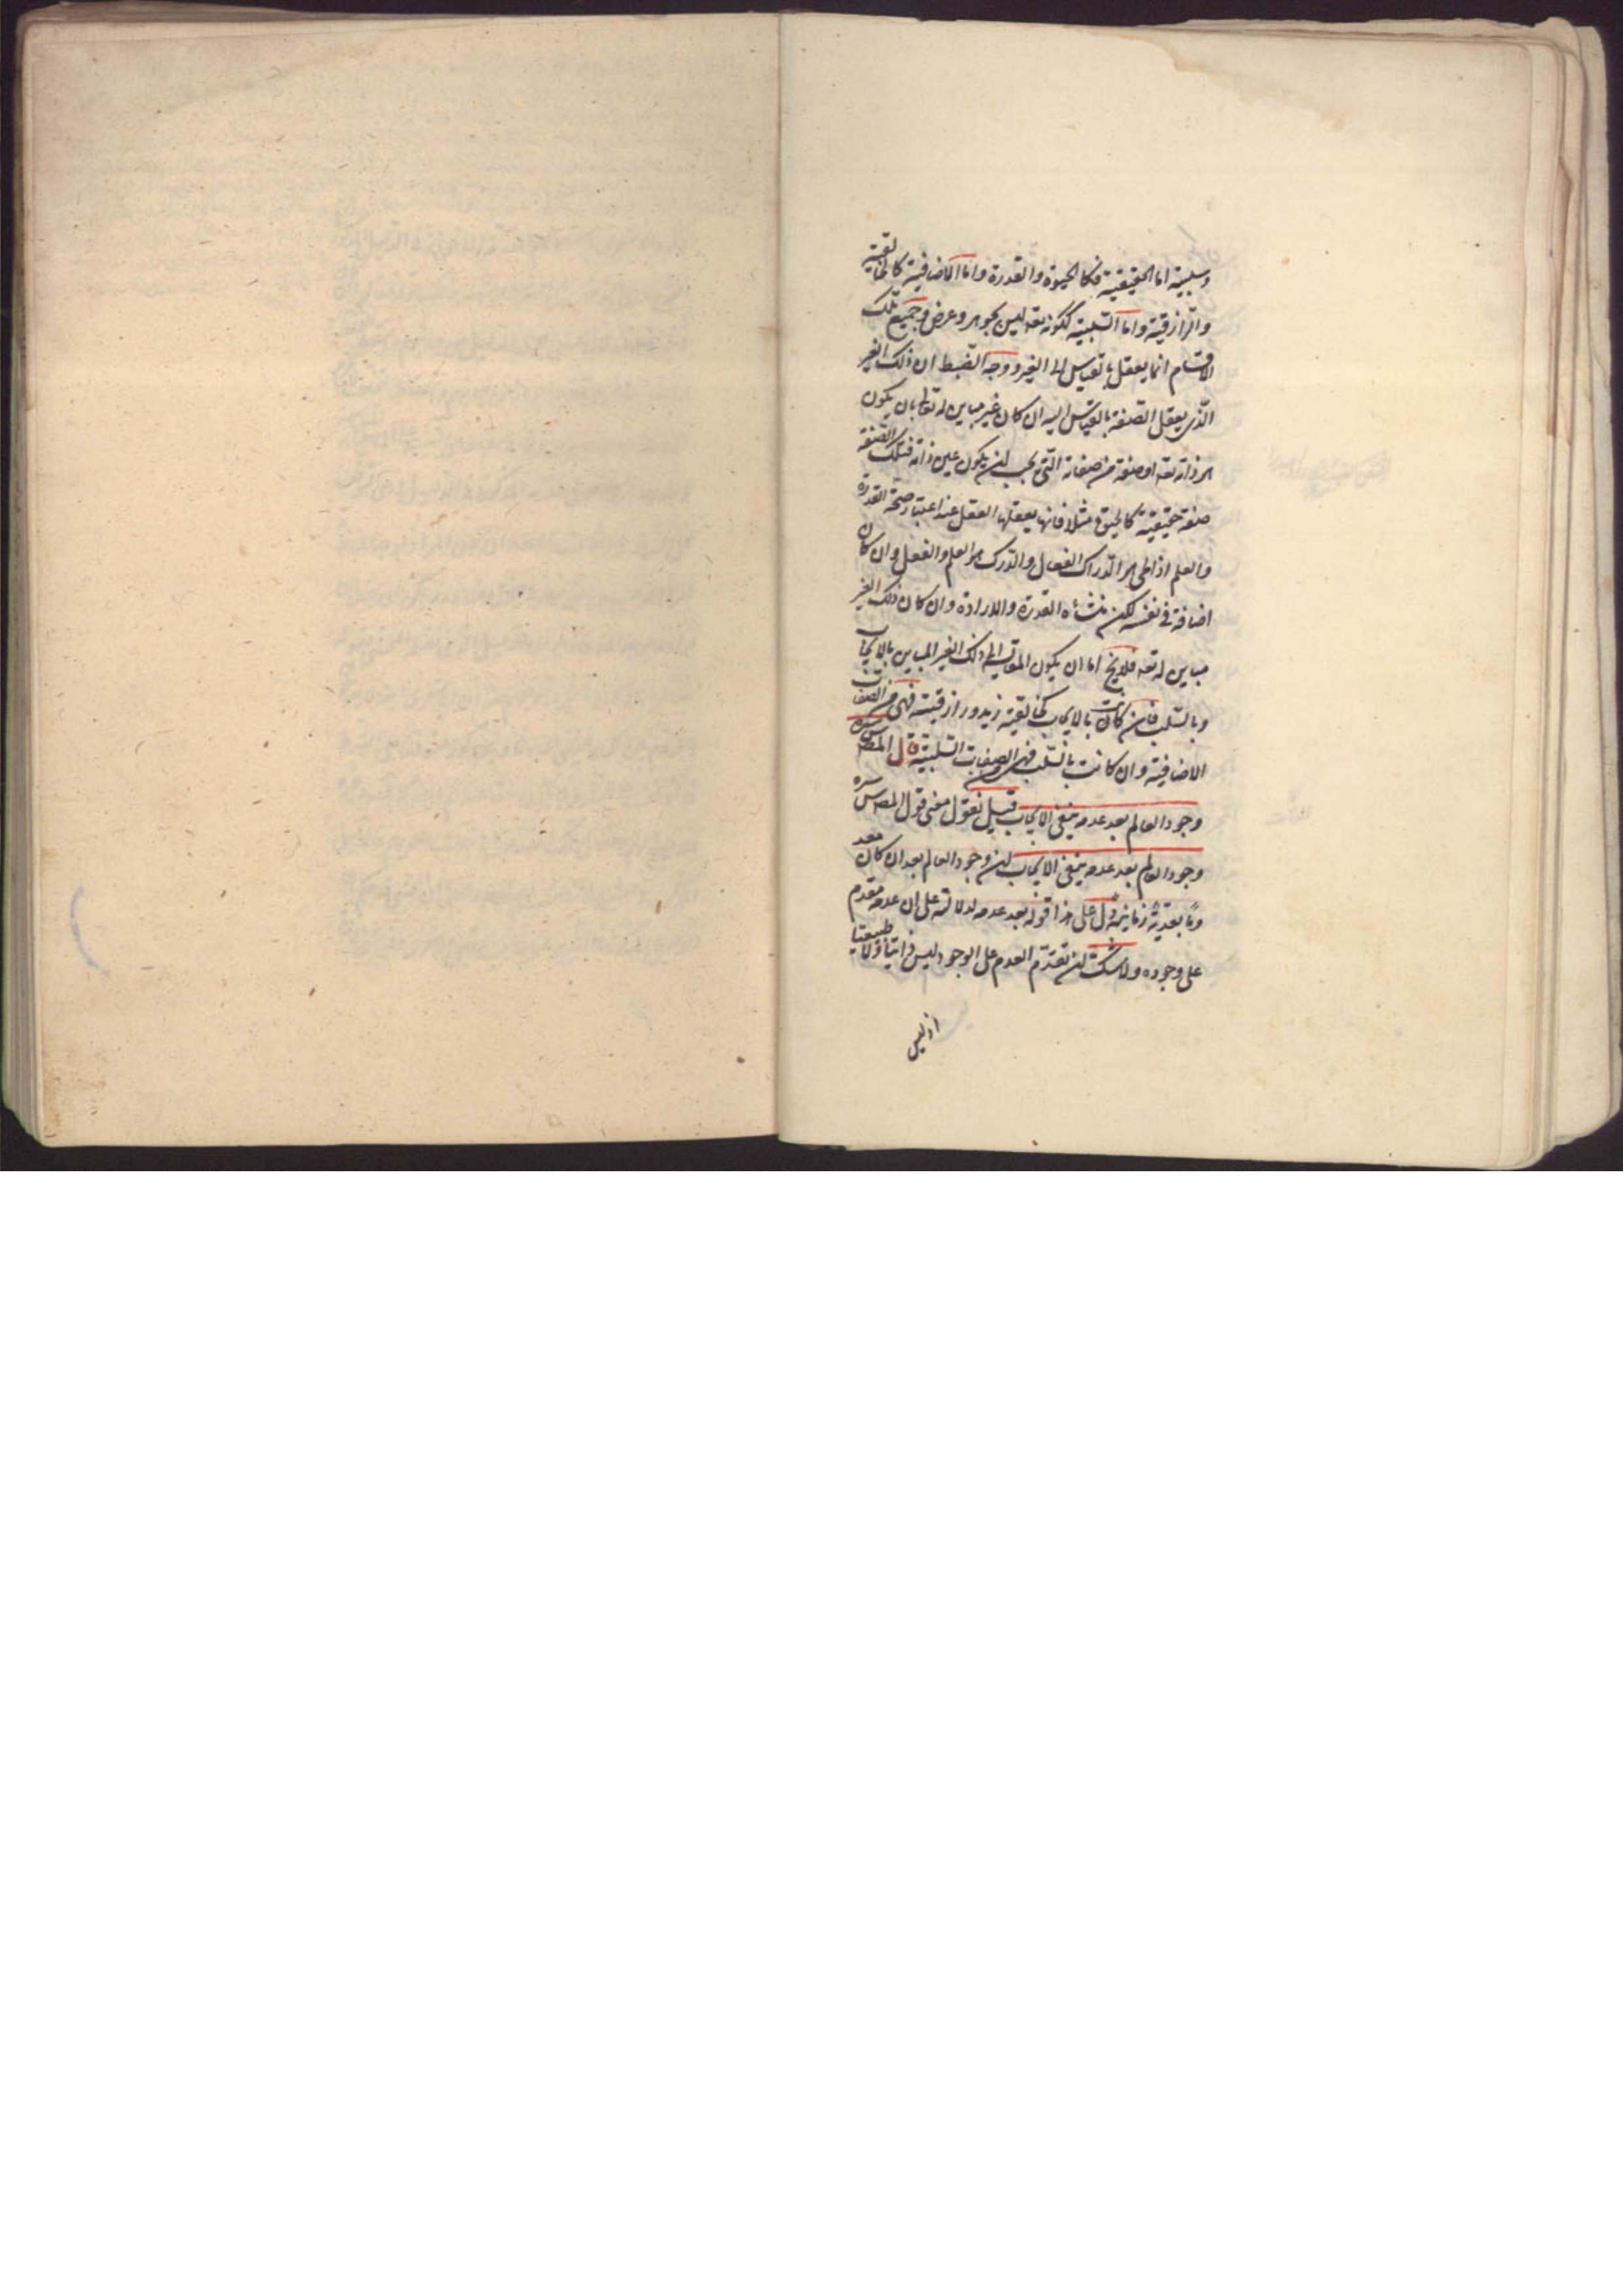 وسلبية اما الحقيقية فكالحيوة والقدرة واما الاضافية كالخالقية
والرّازقية واما السّلبية ككونه تعه ليس بجوهر وعرض وجميع تلك
الاقسام انما يعقل بالقياس الى الغير ووجه الضبط ان ذلك الغير
الّذى يعقل الصّفة بالقياس اليه ان كان غير مباين له تعالى بان يكون
هو ذاته تعه او صفة من صفاته التّى يجب ان يكون عين ذاته فتلك الصّفة
صفة حقيقية كالحيوة مثلا فانها يعقلها العقل عند اعتبار صحّة القدرة
والعلم اذ الحى هو الدّراك الفعال والدّرك هو العلم والفعل وان كان
اضافة فى نفسه لكن منشأه القدرة والارادة وان كان ذلك الغير
مباين له تعه فلا يخ اما ان يكون المقايسة الى ذلك الغير المباين بالايجاب
وبالسّلب فان كانت بالايجاب كخالقية زيد ورازقيته فهى من الصّفات
الاضافية وان كانت بالسّلب فهى من الصفات السّلبية قال المصـ سرّه
وجود العالم بعد عدمه ينفى الايجاب قيل نقول معنى قول المصـ سرّه
وجود العالم بعد عدمه ينفى الايجاب ان وجود العالم بعد ان كان معد
ومًا بعديّة زمانية دلّ على هذا قوله بعد عدمه لدلالته على ان عدمه مقدم
على وجوده ولا شك ان تقدّم العدم على الوجود ليس ذاتيا ولا طبيعيا
اذ ليس